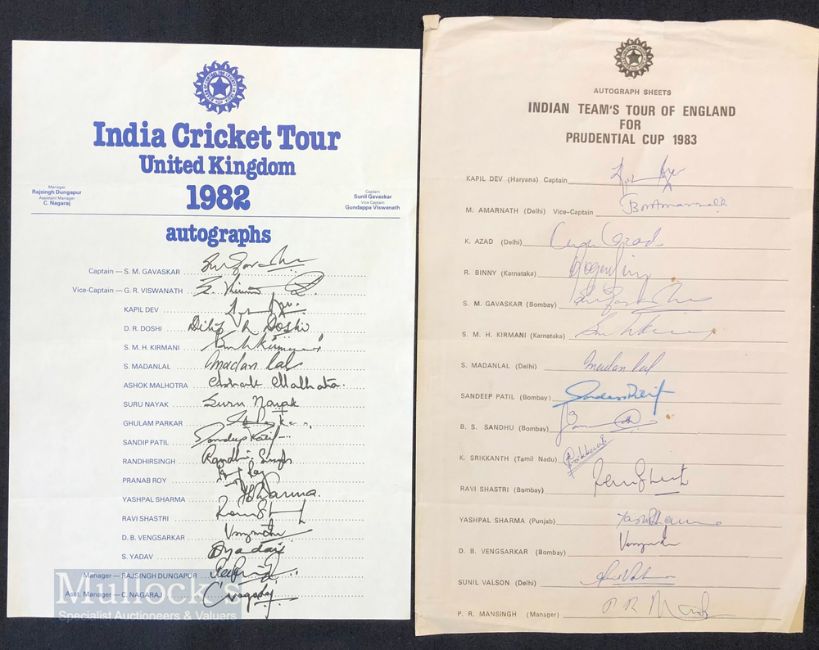 India Cricket Tour
United Kingdom
1982
Manager
Rajsingh Dungapur
Assistant Manager
C. Nagaraj
Captain
Sunil Gavaskar
Vice Captain
Gundappa Viswanath
autographs
Captain — S. M. GAVASKAR
Vice-Captain — G. R. VISWANATH
KAPIL DEV
D. R. DOSHI Dilip R Doshi
S. M. H. KIRMANI
S. MADANLAL Madan Lal
ASHOK MALHOTRA Ashok Malhotra
SURU NAYAK Suru Nayak
GHULAM PARKAR
SANDIP PATIL Sandeep Patil
RANDHIRSINGH Randhir Singh
PRANAB ROY
YASHPAL SHARMA
RAVI SHASTRI
D. B. VENGSARKAR
S. YADAV
Manager — RAJSINGH DUNGAPUR
Asst. Manager — C. NAGARAJ
Mullock's
Specialist Auctioneers & Valuers
AUTOGRAPH SHEETS
INDIAN TEAM'S TOUR OF ENGLAND
FOR
PRUDENTIAL CUP 1983
KAPIL DEV (Haryana) Captain
M. AMARNATH (Delhi) Vice-Captain
K. AZAD (Delhi)
R. BINNY (Karnataka)
S. M. GAVASKAR (Bombay)
S. M. H. KIRMANI (Karnataka)
S. MADANLAL (Delhi) Madan Lal
SANDEEP PATIL (Bombay) Sandeep Patil
B. S. SANDHU (Bombay)
K. SRIKKANTH (Tamil Nadu)
RAVI SHASTRI (Bombay)
YASHPAL SHARMA (Punjab)
D. B. VENGSARKAR (Bombay)
SUNIL VALSON (Delhi)
P. R. MANSINGH (Manager)